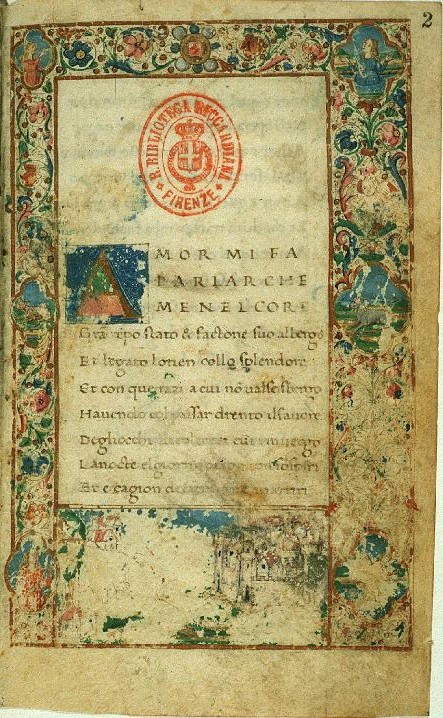 2
R. BIBLIOTECA RICCARDIANA
FIRENZE
AMOR MI FA
PARLAR CHE
MENELCORE
Grā tēpo stato & factone suo albergo
Et legato lotien collo splendore
Et con que razi a cui nō valse sbergo
Havendo col passar drento ilfavore
Degliocchi
La nocte elgiorno
Et e cagion